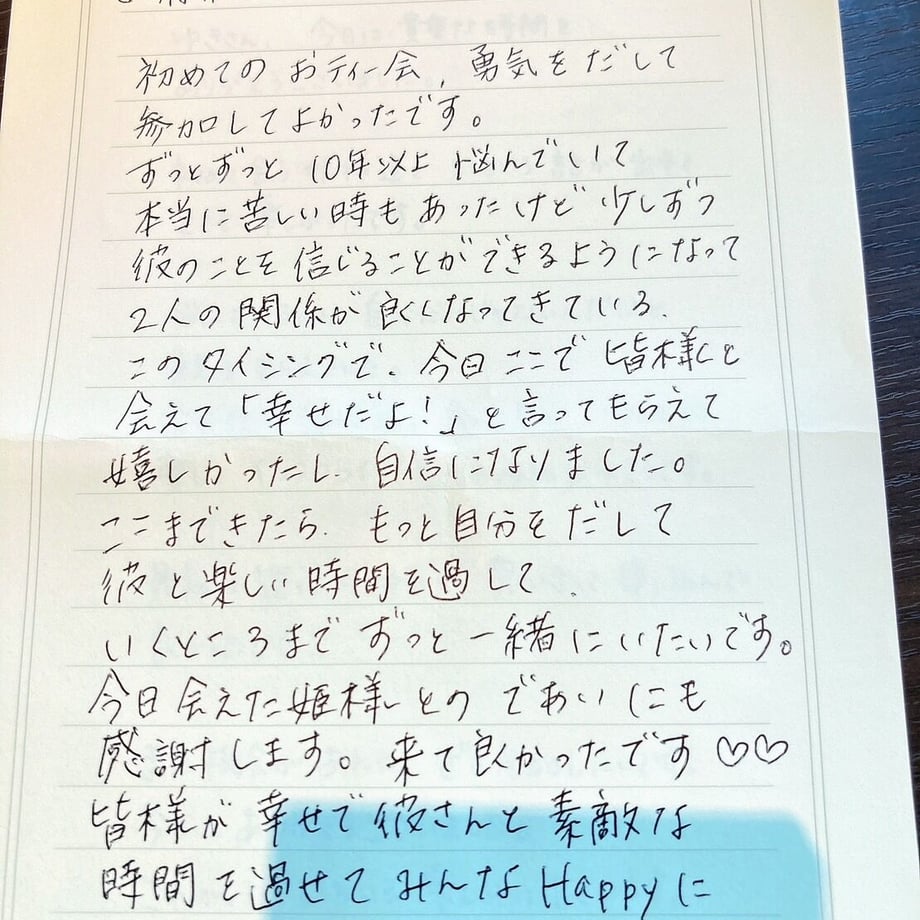 初めての おティー会、勇気をだして
参加してよかったです。
ずっとずっと 10年以上 悩んでいて
本当に苦しい時もあったけど 少しずつ
彼のことを信じることができるようになって
2人の関係が良くなってきている、
このタイミングで、今日ここで 皆様と
会えて「幸せだよ!」と言ってもらえて
嬉しかったし、自信になりました。
ここまできたら、もっと自分をだして
彼と楽しい時間を過して、
いくところまで ずっと一緒にいたいです。
今日会えた姫様との であいにも
感謝します。来て良かったです♡♡
皆様が幸せで 彼さんと素敵な
時間を過せて みんな Happyに